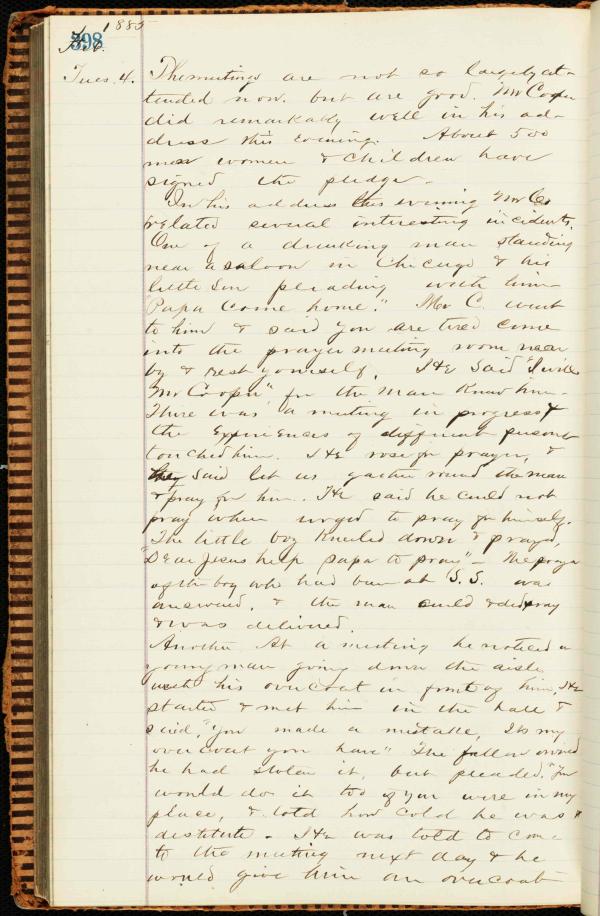 1885
398
Tues. 4. The meetings are not so largely at-
tended now. but are good. Mr Cooper
did remarkably well in his ad-
dress this evening. About 500
men women & children have
signed the pledge -
In his address this evening Mr C
related several interesting incidents.
One of a drinking man standing
near a saloon in Chicago & his
little son pleading with him
"Papa come home." Mr C. went
to him & said you are tired come
into the prayer meeting room near
by & rest yourself. He said "I will
Mr Cooper" for the man knew him.
There was a meeting in progress &
the experiences of different persons
touched him. He rose for prayer, &
they said let us gather round the man
& pray for him. He said he could not
pray when urged to pray for himself.
The little boy kneeled down & prayed,
"Dear Jesus help papa to pray" - The prayer
of the boy who had been at S.S. was
answered, & the man could & did pray
& was delivered.
Another At a meeting he noticed a
young man going down the aisle
with his overcoat in front of him, He
started & met him in the hall &
said, "you made a mistake, Its my
overcoat you have" The fellow owned
he had stolen it, but pleaded, "You
would do it too if you were in my
place, & told how cold he was &
destitute - He was told to come
to the meeting next day & he
would give him an overcoat